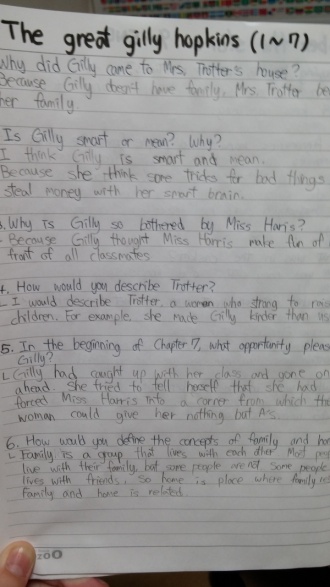 The great gilly hopkins (1~7)
Why did Gilly came to Mrs. Trotter's house?
Because Gilly doesn't have family. Mrs. Trotter be
her family.
Is Gilly smart or mean? Why?
I think Gilly is smart and mean.
Because she think some tricks for bad things
steal money with her smart brain.
3. Why is Gilly so bothered by Miss Haris?
- Because Gilly thought Miss Harris make fun of
front of all classmates
4. How would you describe Trotter?
L I would describe Trotter, a women who strong to rais
children. For example, she made Gilly kinder than us
5. In the beginning of Chapter 7, what opportunity pleas
Gilly?
L Gilly had caught up with her class and gone on
ahead. She tried to tell herself that she had
forced Miss Harris into a corner from which the
woman could give her nothing but As.
6. How would you define the concepts of family and ho
L Family is a group that lives with each other. Most peo
live with their family, but some people are not. Some people
lives with friends. So home is place where family
Family and home is related.